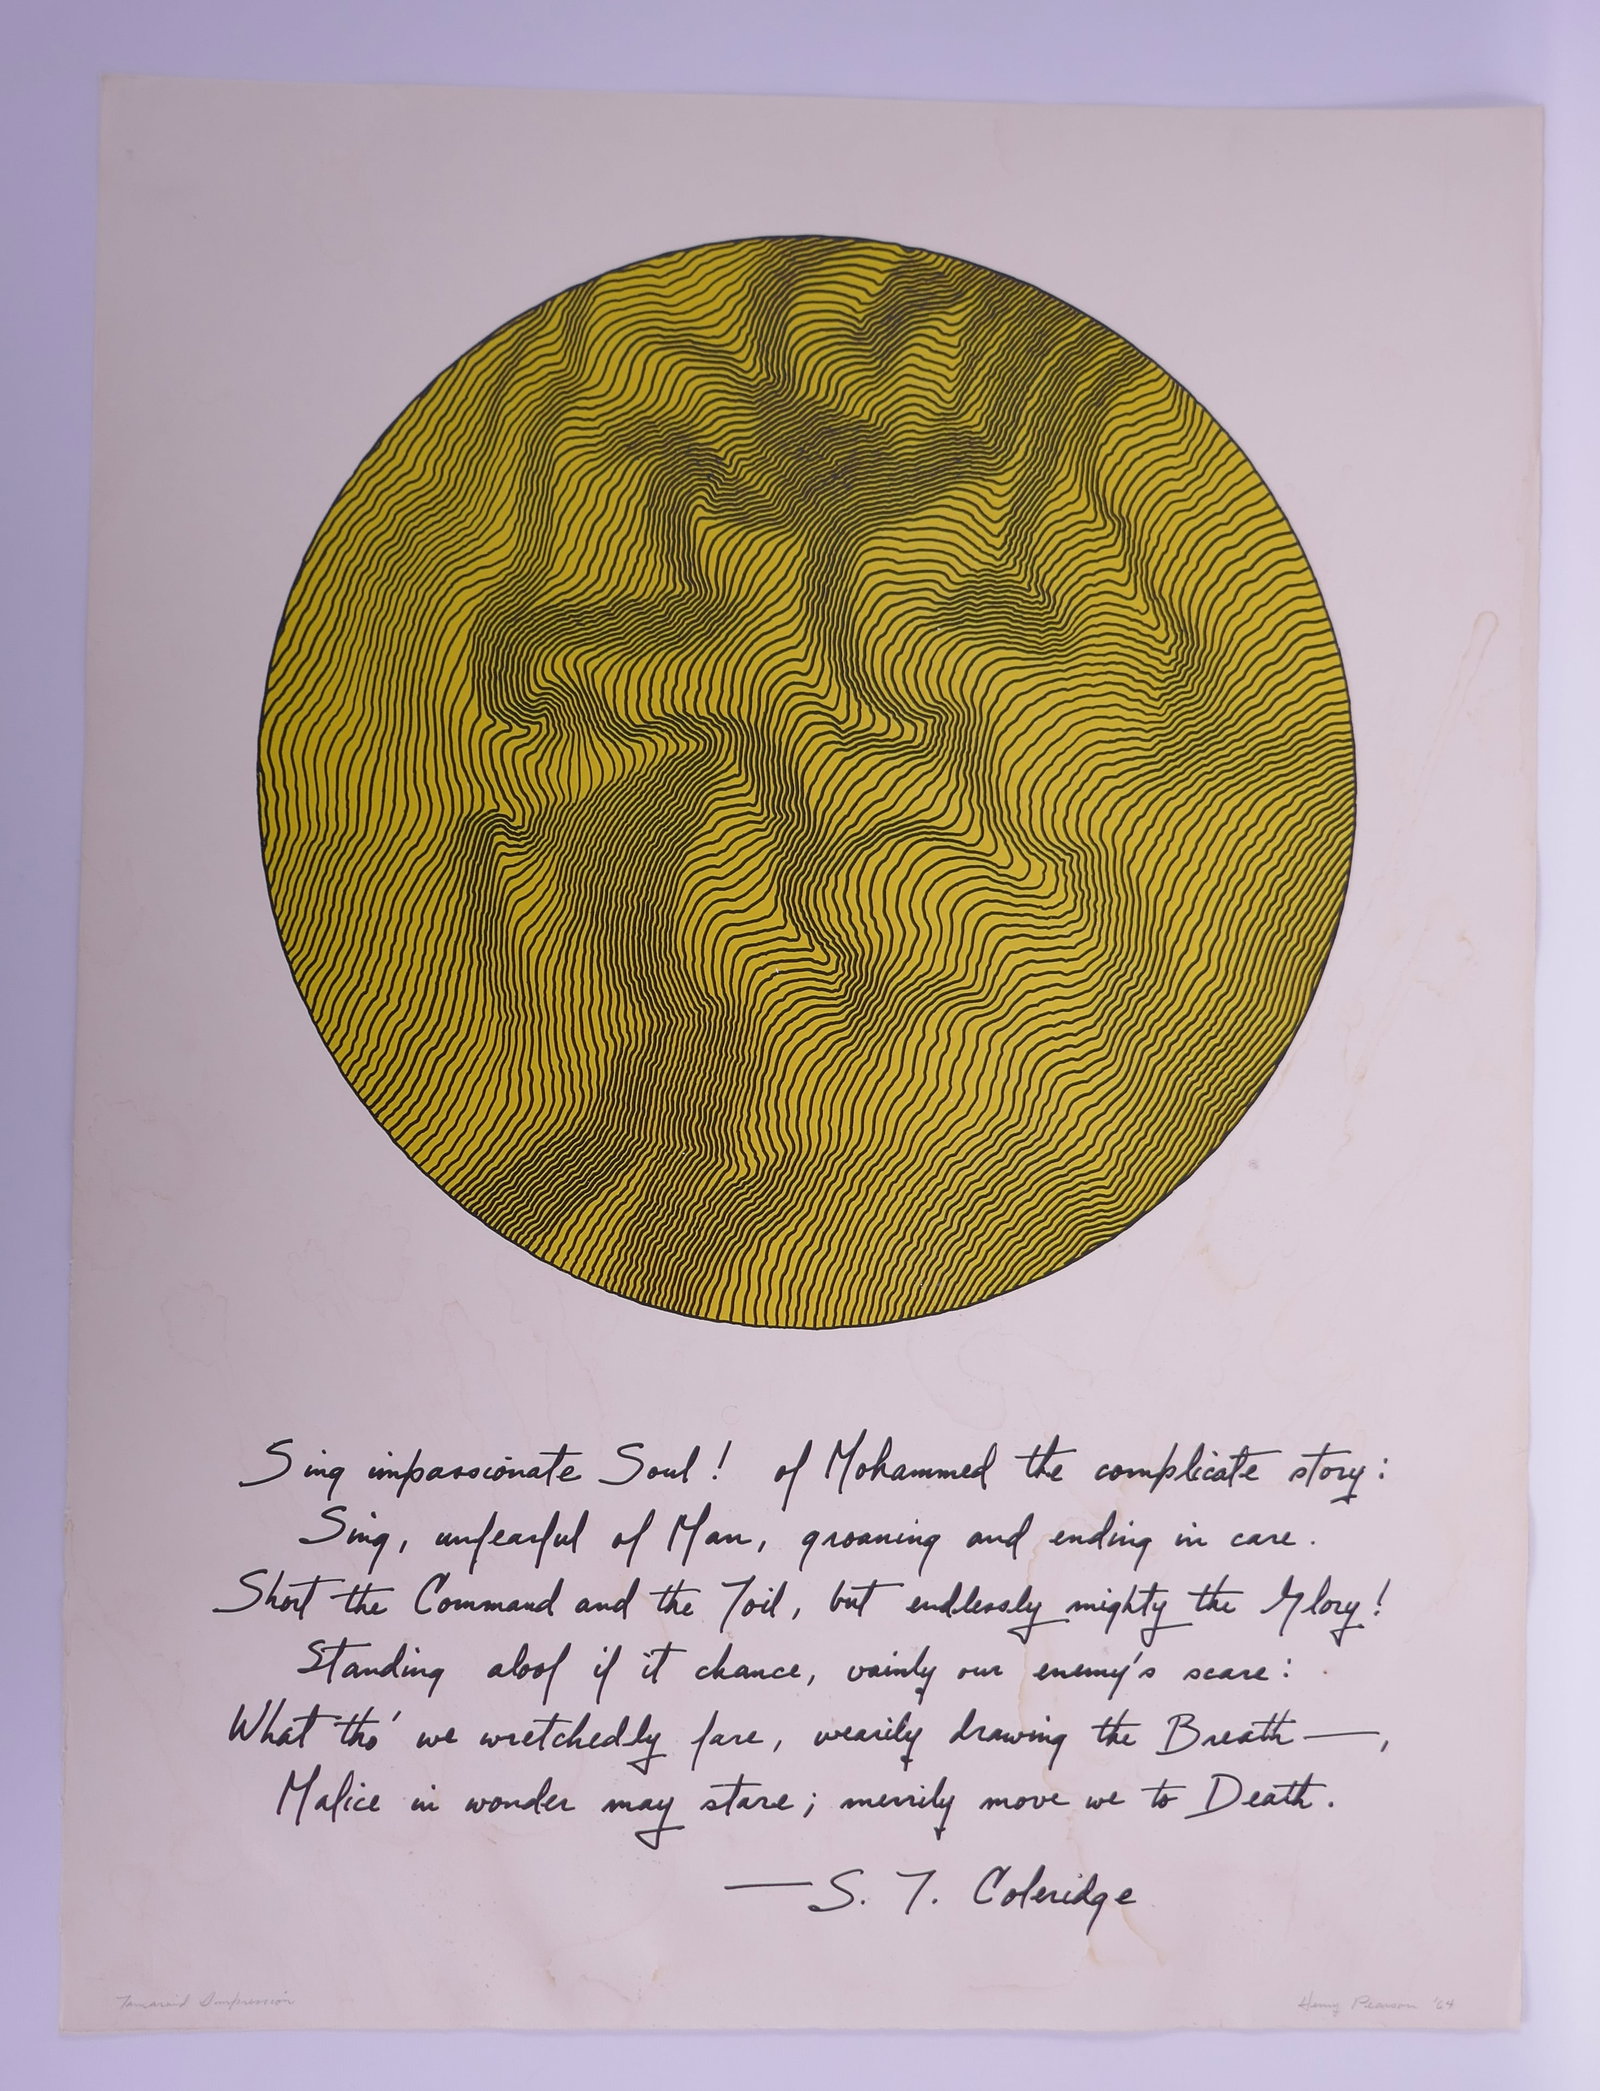 Sing impassionate Soul! of Mohammed the complicate story:
Sing, unfearful of Man, groaning and ending in care.
Short the Command and the Toil, but endlessly mighty the Glory!
Standing aloof if it chance, vainly our enemy's scare:
What tho' we wretchedly fare, wearily drawing the Breath—,
Malice in wonder may stare; merrily move we to Death.
—S. T. Coleridge
Tamarind Impression
Henry Pearson '64